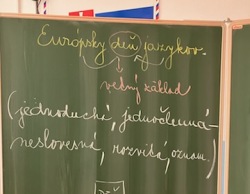 Európsky deň jazykov.
vetný základ
(jednoduchá, jednočlenná-
neslovesná, rozvitá, oznam.)